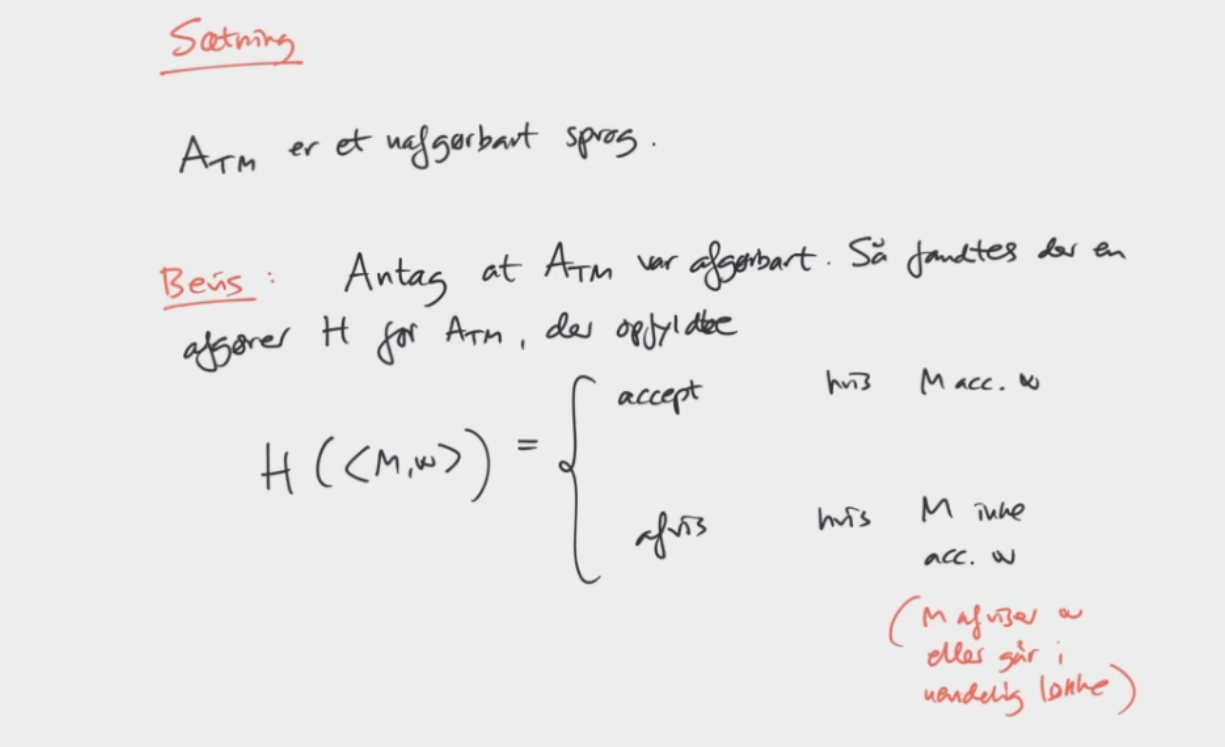 Sætning
A_TM er et uafgørbart sprog.
Bevis: Antag at A_TM var afgørbart. Så fandtes der en
afgører H for A_TM, der opfyldte
H(<M,w>) = { accept hvis M acc. w
afvis hvis M ikke
acc. w
(M afviser w
eller går i
uendelig løkke)